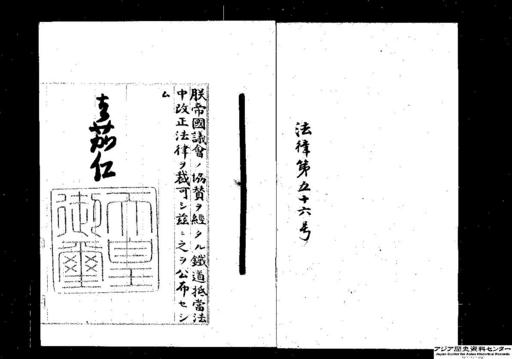 法律第五十六号
朕帝國議會ノ協賛ヲ經タル鐵道抵當法
中改正法律ヲ裁可シ茲ニ之ヲ公布セシ
ム
嘉仁
天皇
御璽
アジア歴史資料センター
Japan Center for Asian Historical Records